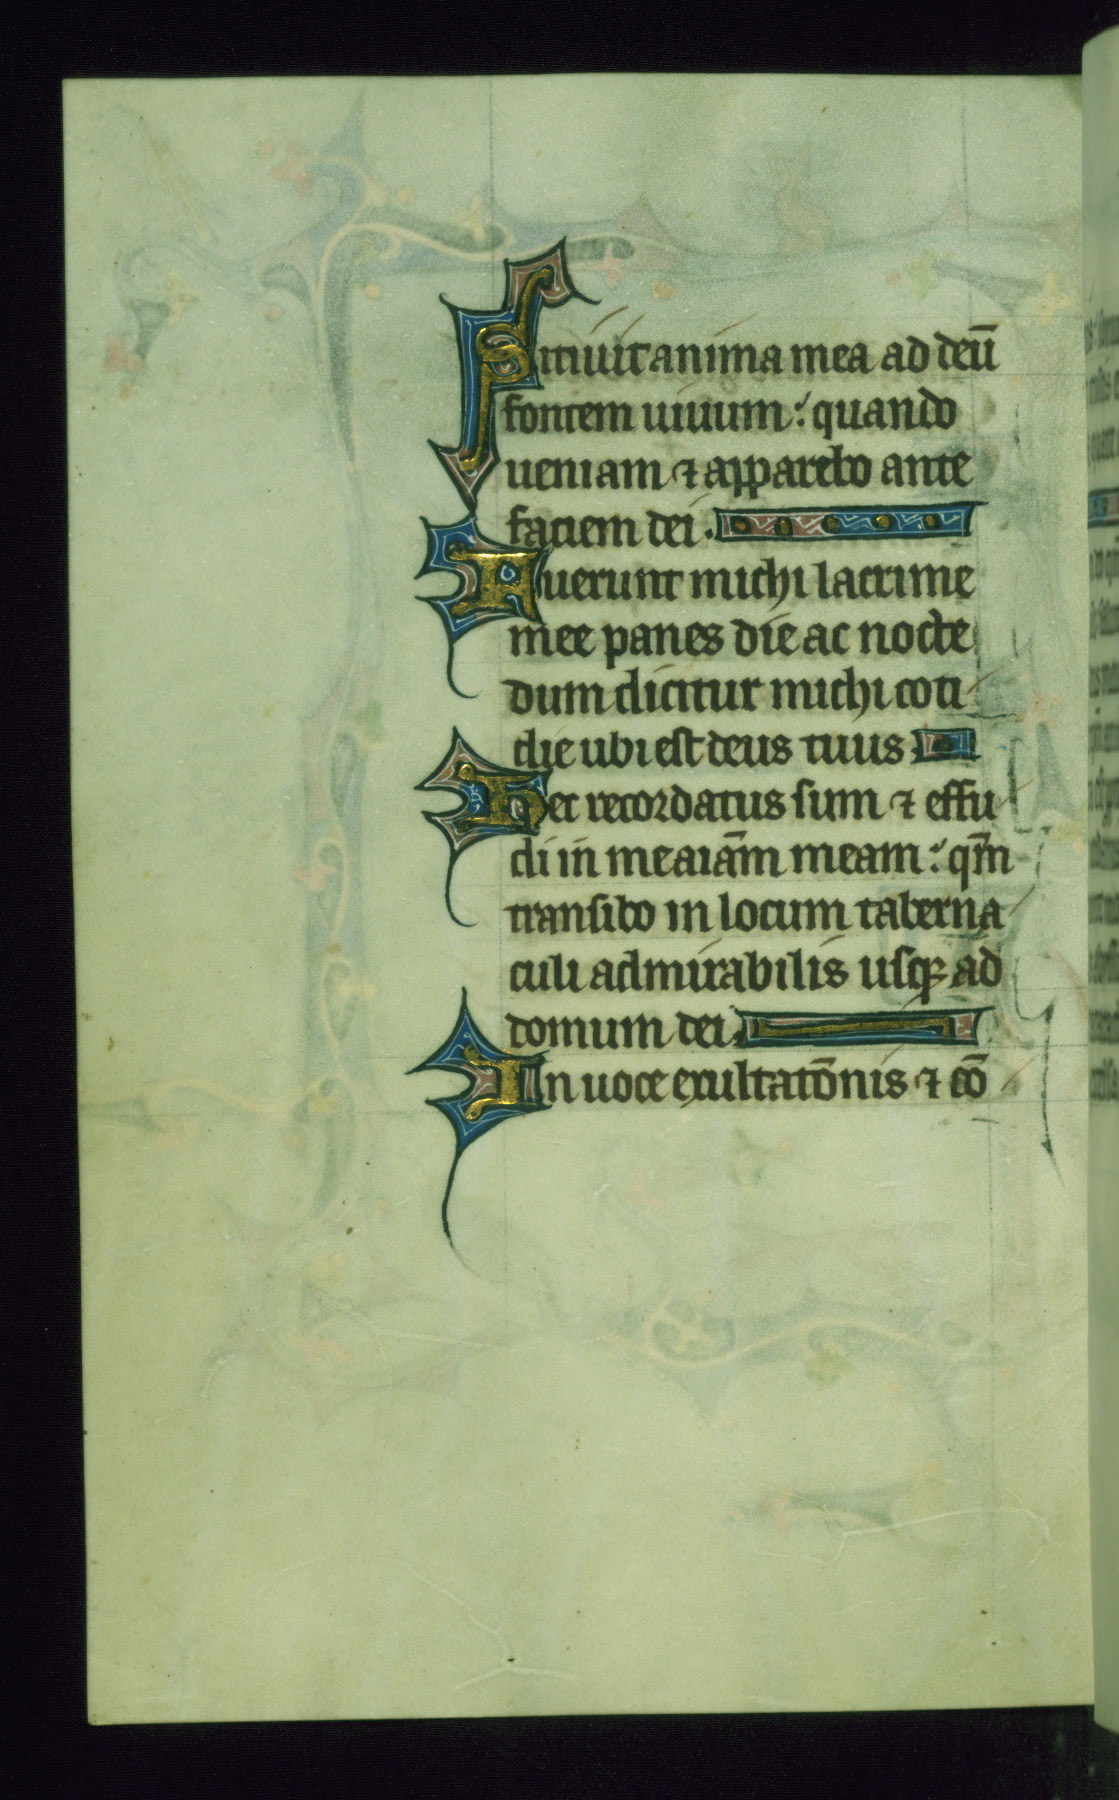 Sitiuit anima mea ad deū
fontem uiuum: quando
ueniam ⁊ apparebo ante
faciem dei.
Fuerunt michi lacrime
mee panes die ac nocte
dum dicitur michi coti
die ubi est deus tuus
Hec recordatus sum ⁊ effu
di in me aiām meam: qm̄
transibo in locum taberna
culi admirabilis usqꝫ ad
domum dei.
In uoce exultatōnis ⁊ cō